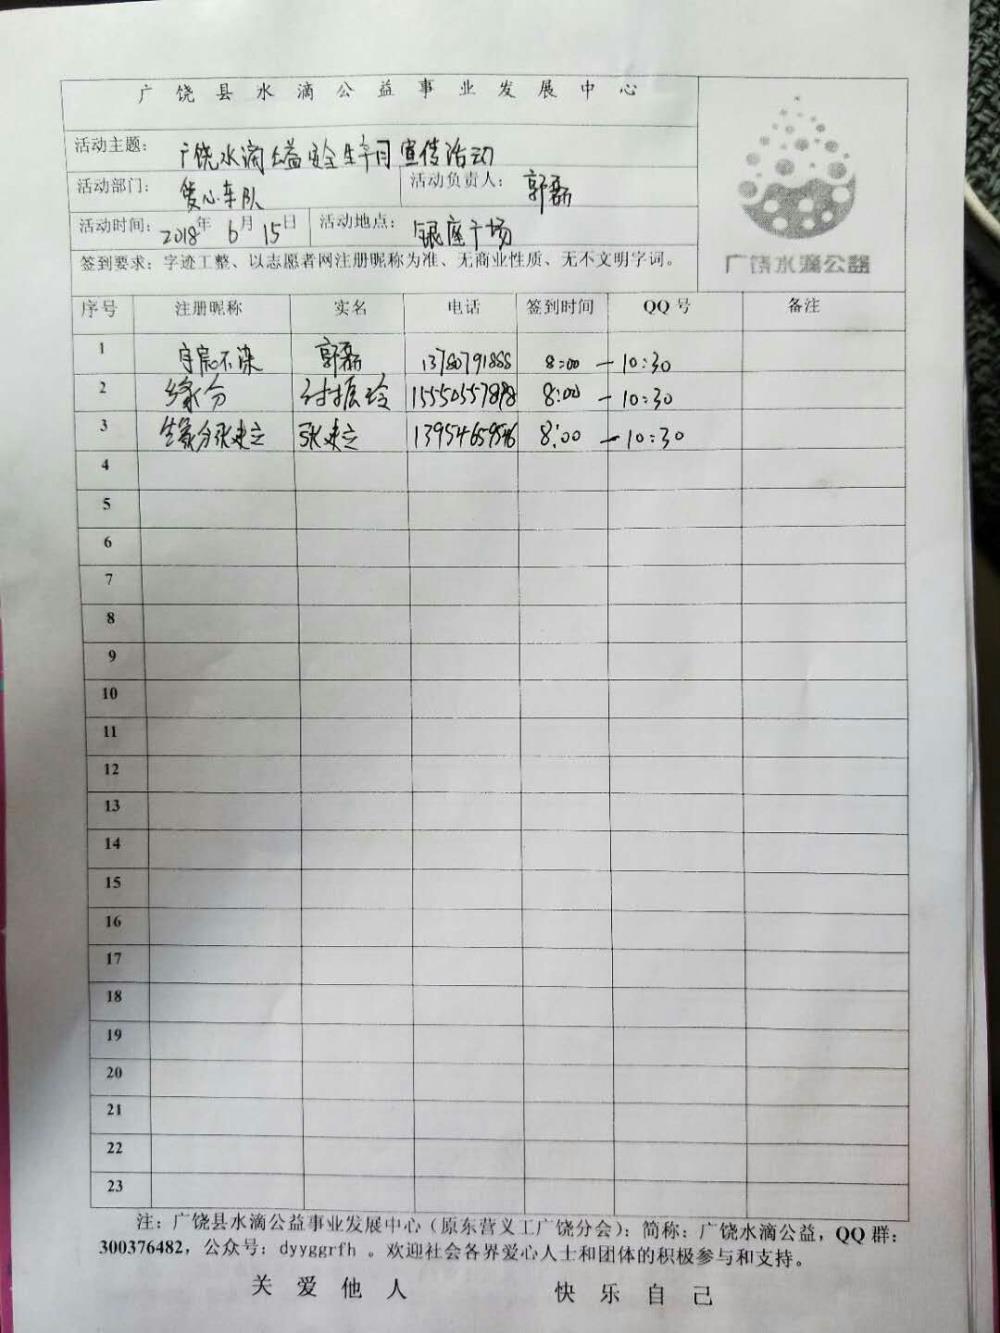 广饶县水滴公益事业发展中心
活动主题： 广饶水滴公益安全生产月宣传活动
活动部门： 爱心车队 活动负责人： 郭磊
活动时间： 2018年 6月 15日 活动地点： 银座广场
签到要求：字迹工整、以志愿者网注册昵称为准、无商业性质、无不文明字词。
广饶水滴公益
序号 注册昵称 实名 电话 签到时间 QQ 号 备注
1 郭磊 13780791888 8:00 — 10:30
2 缘分 付振玲 8:00 — 10:30
3 8:00 — 10:30
4
5
6
7
8
9
10
11
12
13
14
15
16
17
18
19
20
21
22
23
注：广饶县水滴公益事业发展中心（原东营义工广饶分会）；简称：广饶水滴公益，QQ 群：
300376482，公众号：dyyggrfh 。欢迎社会各界爱心人士和团体的积极参与和支持。
关爱他人 快乐自己